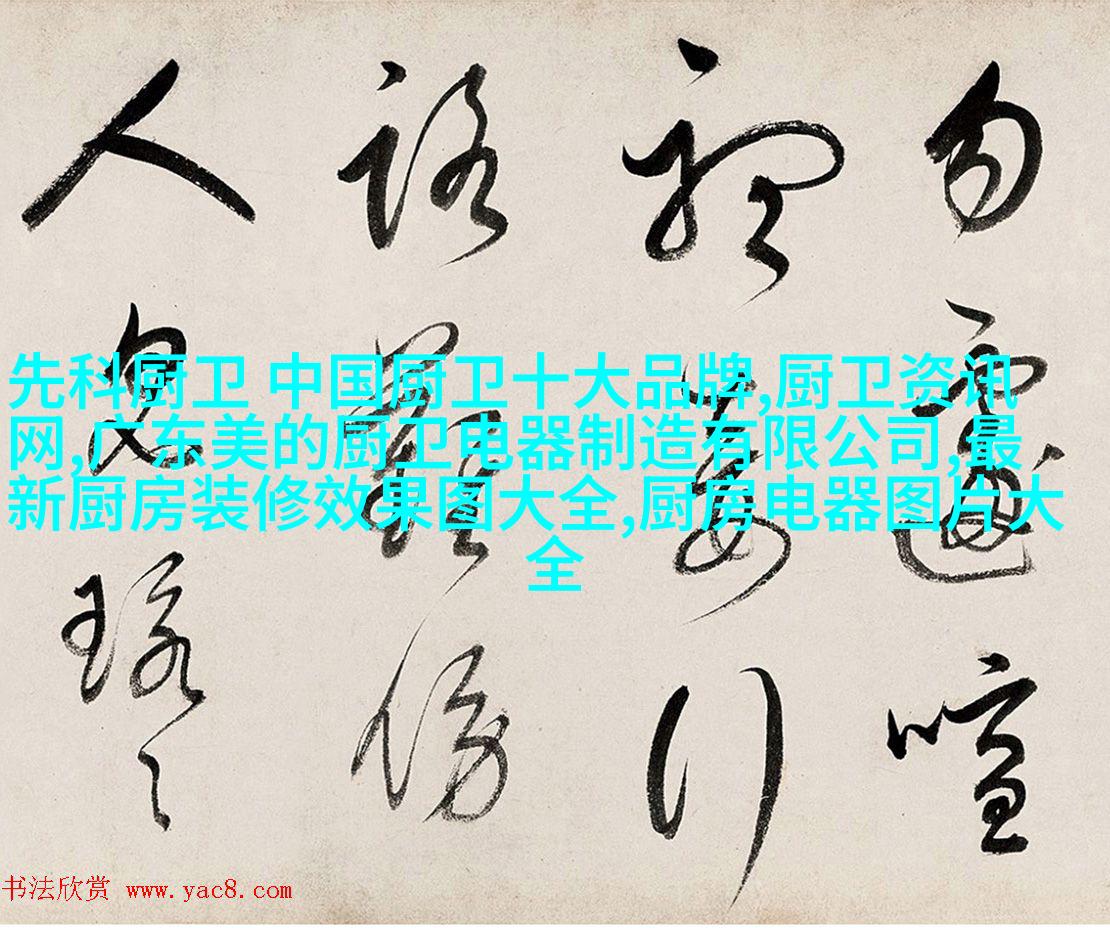 勿遽喧
妾行
路難傍
人
先科厨卫 中国厨卫十大品牌,厨卫资讯
网,广东美的厨卫电器制造有限公司,最
新厨房装修效果图大全,厨房电器图片大
全
书法欣赏 www.yac8.com